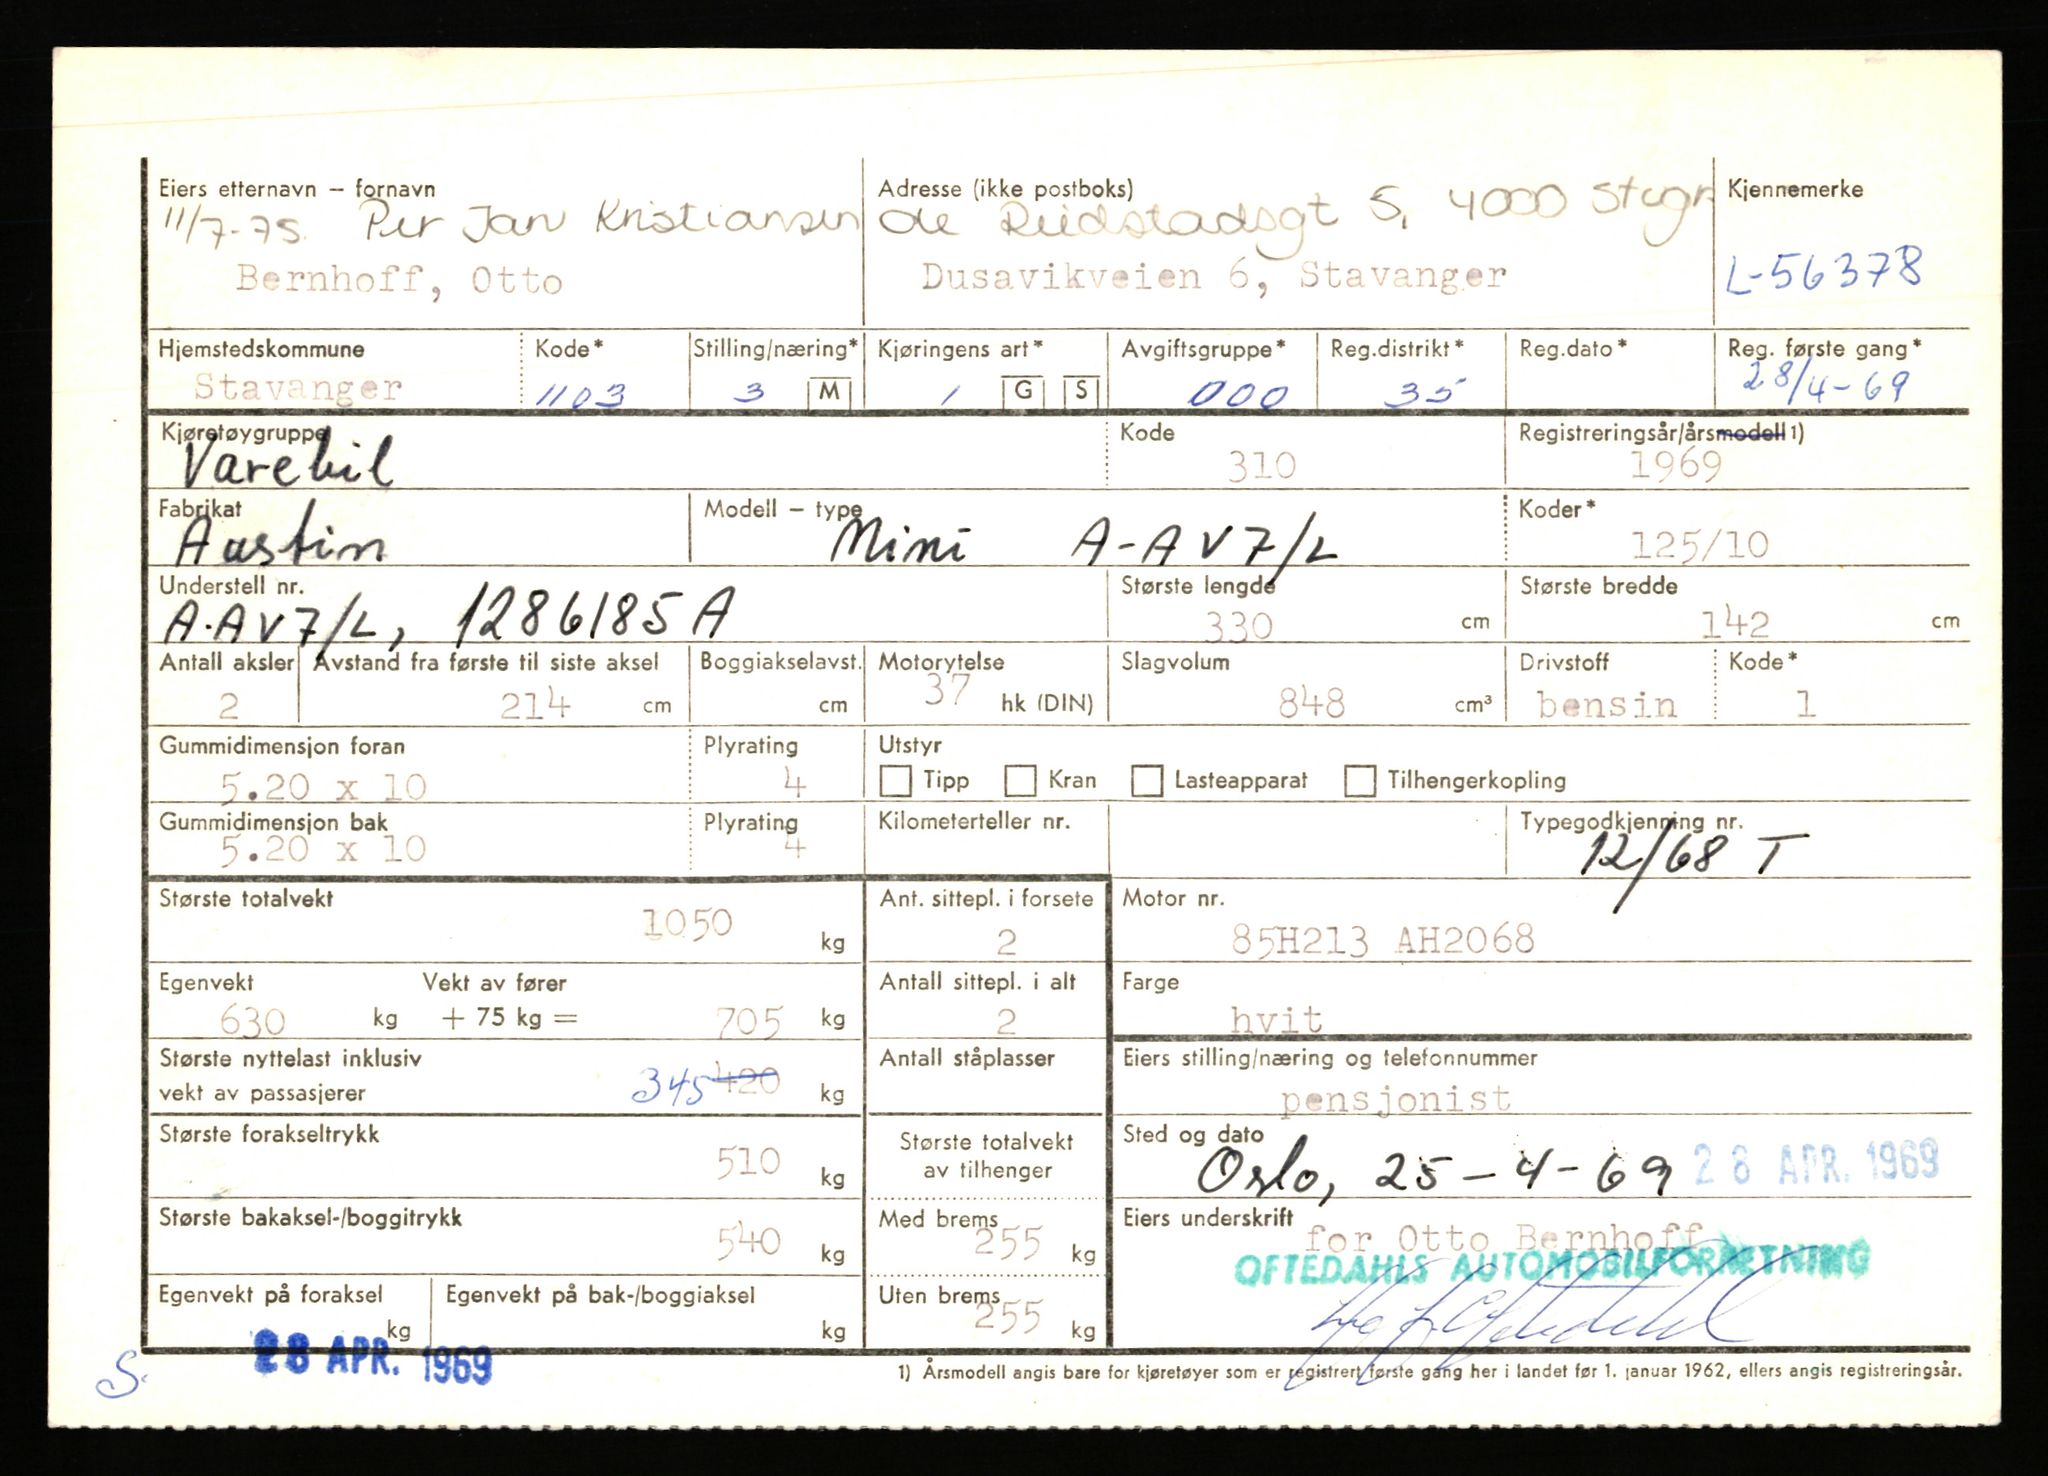 Eiers etternavn – fornavn Adresse (ikke postboks) Kjennemerke
11/7-75. Per Jan Kristiansen de 5, 4000 Stvgr
Bernhoff, Otto Dusavikveien 6, Stavanger L-56378
Hjemstedskommune Kode* Stilling/næring* Kjøringens art* Avgiftsgruppe* Reg.distrikt* Reg.dato* Reg. første gang*
Stavanger 1103 3 M 1 G S 000 35 28/4-69
Kjøretøygruppe Kode Registreringsår/årsmodell 1)
Varebil 310 1969
Fabrikat Modell – type Koder*
Austin Mini A-AV7/L 125/10
Understell nr. Største lengde Største bredde
A.AV7/L, 1286185A 330 cm 142 cm
Antall aksler Avstand fra første til siste aksel Boggiakselavst. Motorytelse Slagvolum Drivstoff Kode*
2 214 cm cm 37 hk (DIN) 848 cm³ bensin 1
Gummidimensjon foran Plyrating Utstyr
5.20 x 10 4 Tipp Kran Lasteapparat Tilhengerkopling
Gummidimensjon bak Plyrating Kilometerteller nr. Typegodkjenning nr.
5.20 x 10 4 12/68 T
Største totalvekt Ant. sittepl. i forsete Motor nr.
1050 kg 2 85H213 AH2068
Egenvekt Vekt av fører Antall sittepl. i alt Farge
630 kg + 75 kg = 705 kg 2 hvit
Største nyttelast inklusiv Antall ståplasser Eiers stilling/næring og telefonnummer
vekt av passasjerer 345 420 kg pensjonist
Største forakseltrykk Største totalvekt Sted og dato
510 kg av tilhenger Oslo, 25-4-69 28 APR. 1969
Største bakaksel-/boggitrykk Med brems Eiers underskrift
540 kg 255 kg for Otto Bernhoff
OFTEDAHLS AUTOMOBILFORRETNING
Egenvekt på foraksel Egenvekt på bak-/boggiaksel Uten brems
kg kg 255 kg
S. 28 APR. 1969 1) Årsmodell angis bare for kjøretøyer som er registrert første gang her i landet før 1. januar 1962, ellers angis registreringsår.